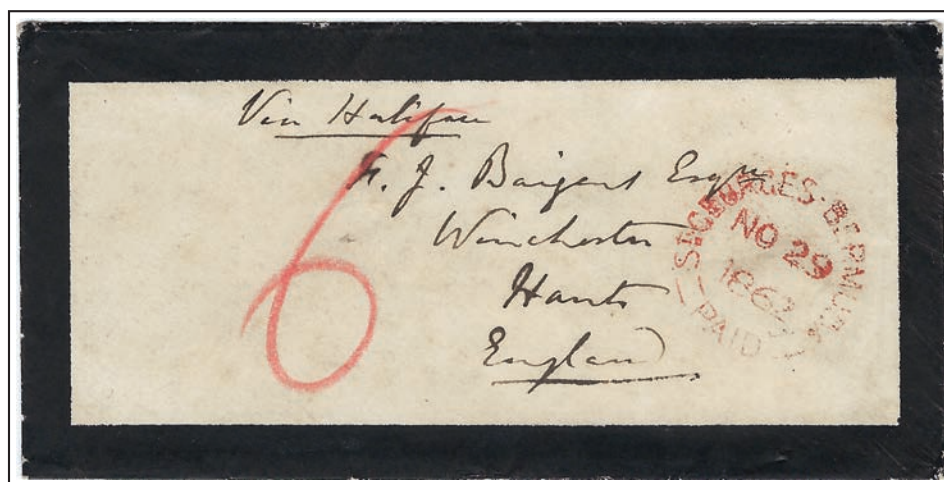 Via Halifax
F. J. Baigent Esqre
Winchester
Hants
England
6
ST GEORGES · BERMUDA
NO 29
1862
PAID